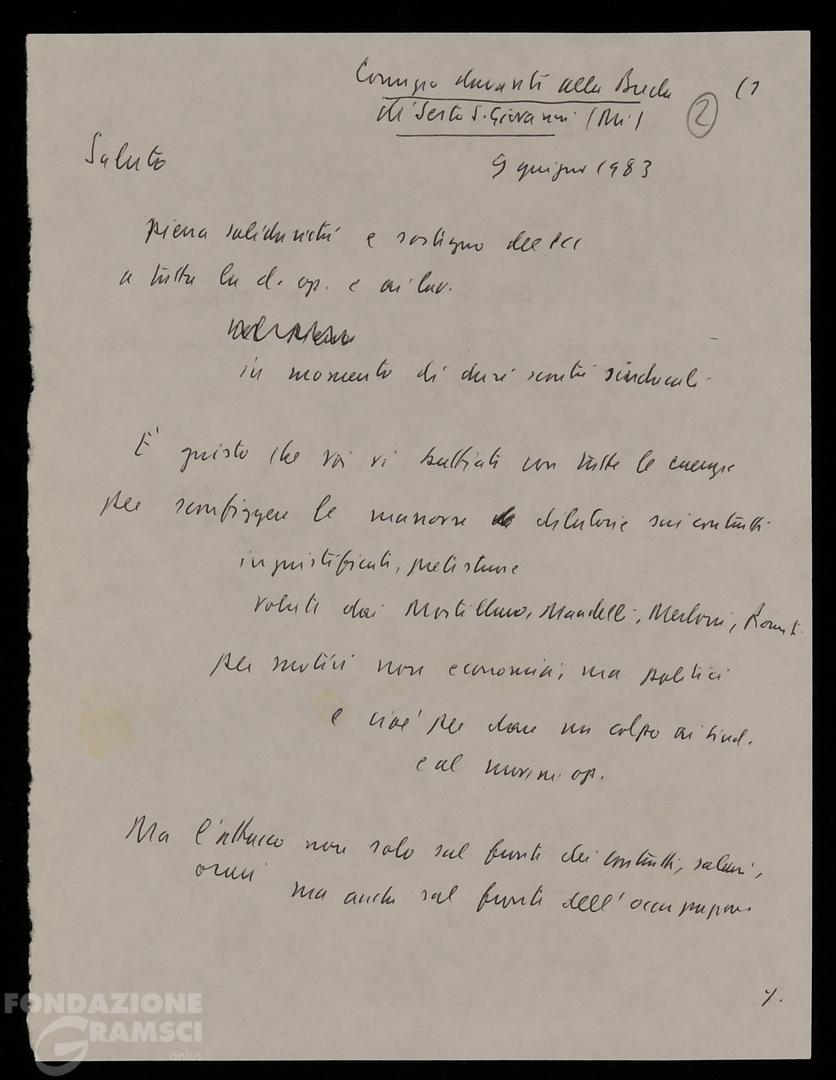 Comizio davanti alla Breda (1
di Sesto S. Giovanni (Mi) 2
Saluto
9 giugno 1983
piena solidarietà e sostegno del PCI
a tutta la cl. op. e ai lav.
in momento di duri scontri sindacali
È giusto che voi vi battiate con tutte le energie
per sconfiggere le manovre dilatorie sui contratti
ingiustificati, pretestuose
volute dai Mortillaro, Mandelli, Merloni, Romiti
per motivi non economici, ma politici
e cioè per dare un colpo ai sind.
e al movim. op.
Ma l'attacco non solo sul fronte dei contratti, salari,
orari
ma anche sul fronte dell'occupazione
FONDAZIONE
GRAMSCI
onlus